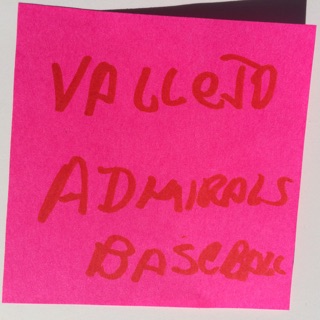 VALLeJO
ADMIRALS
BASEBALL